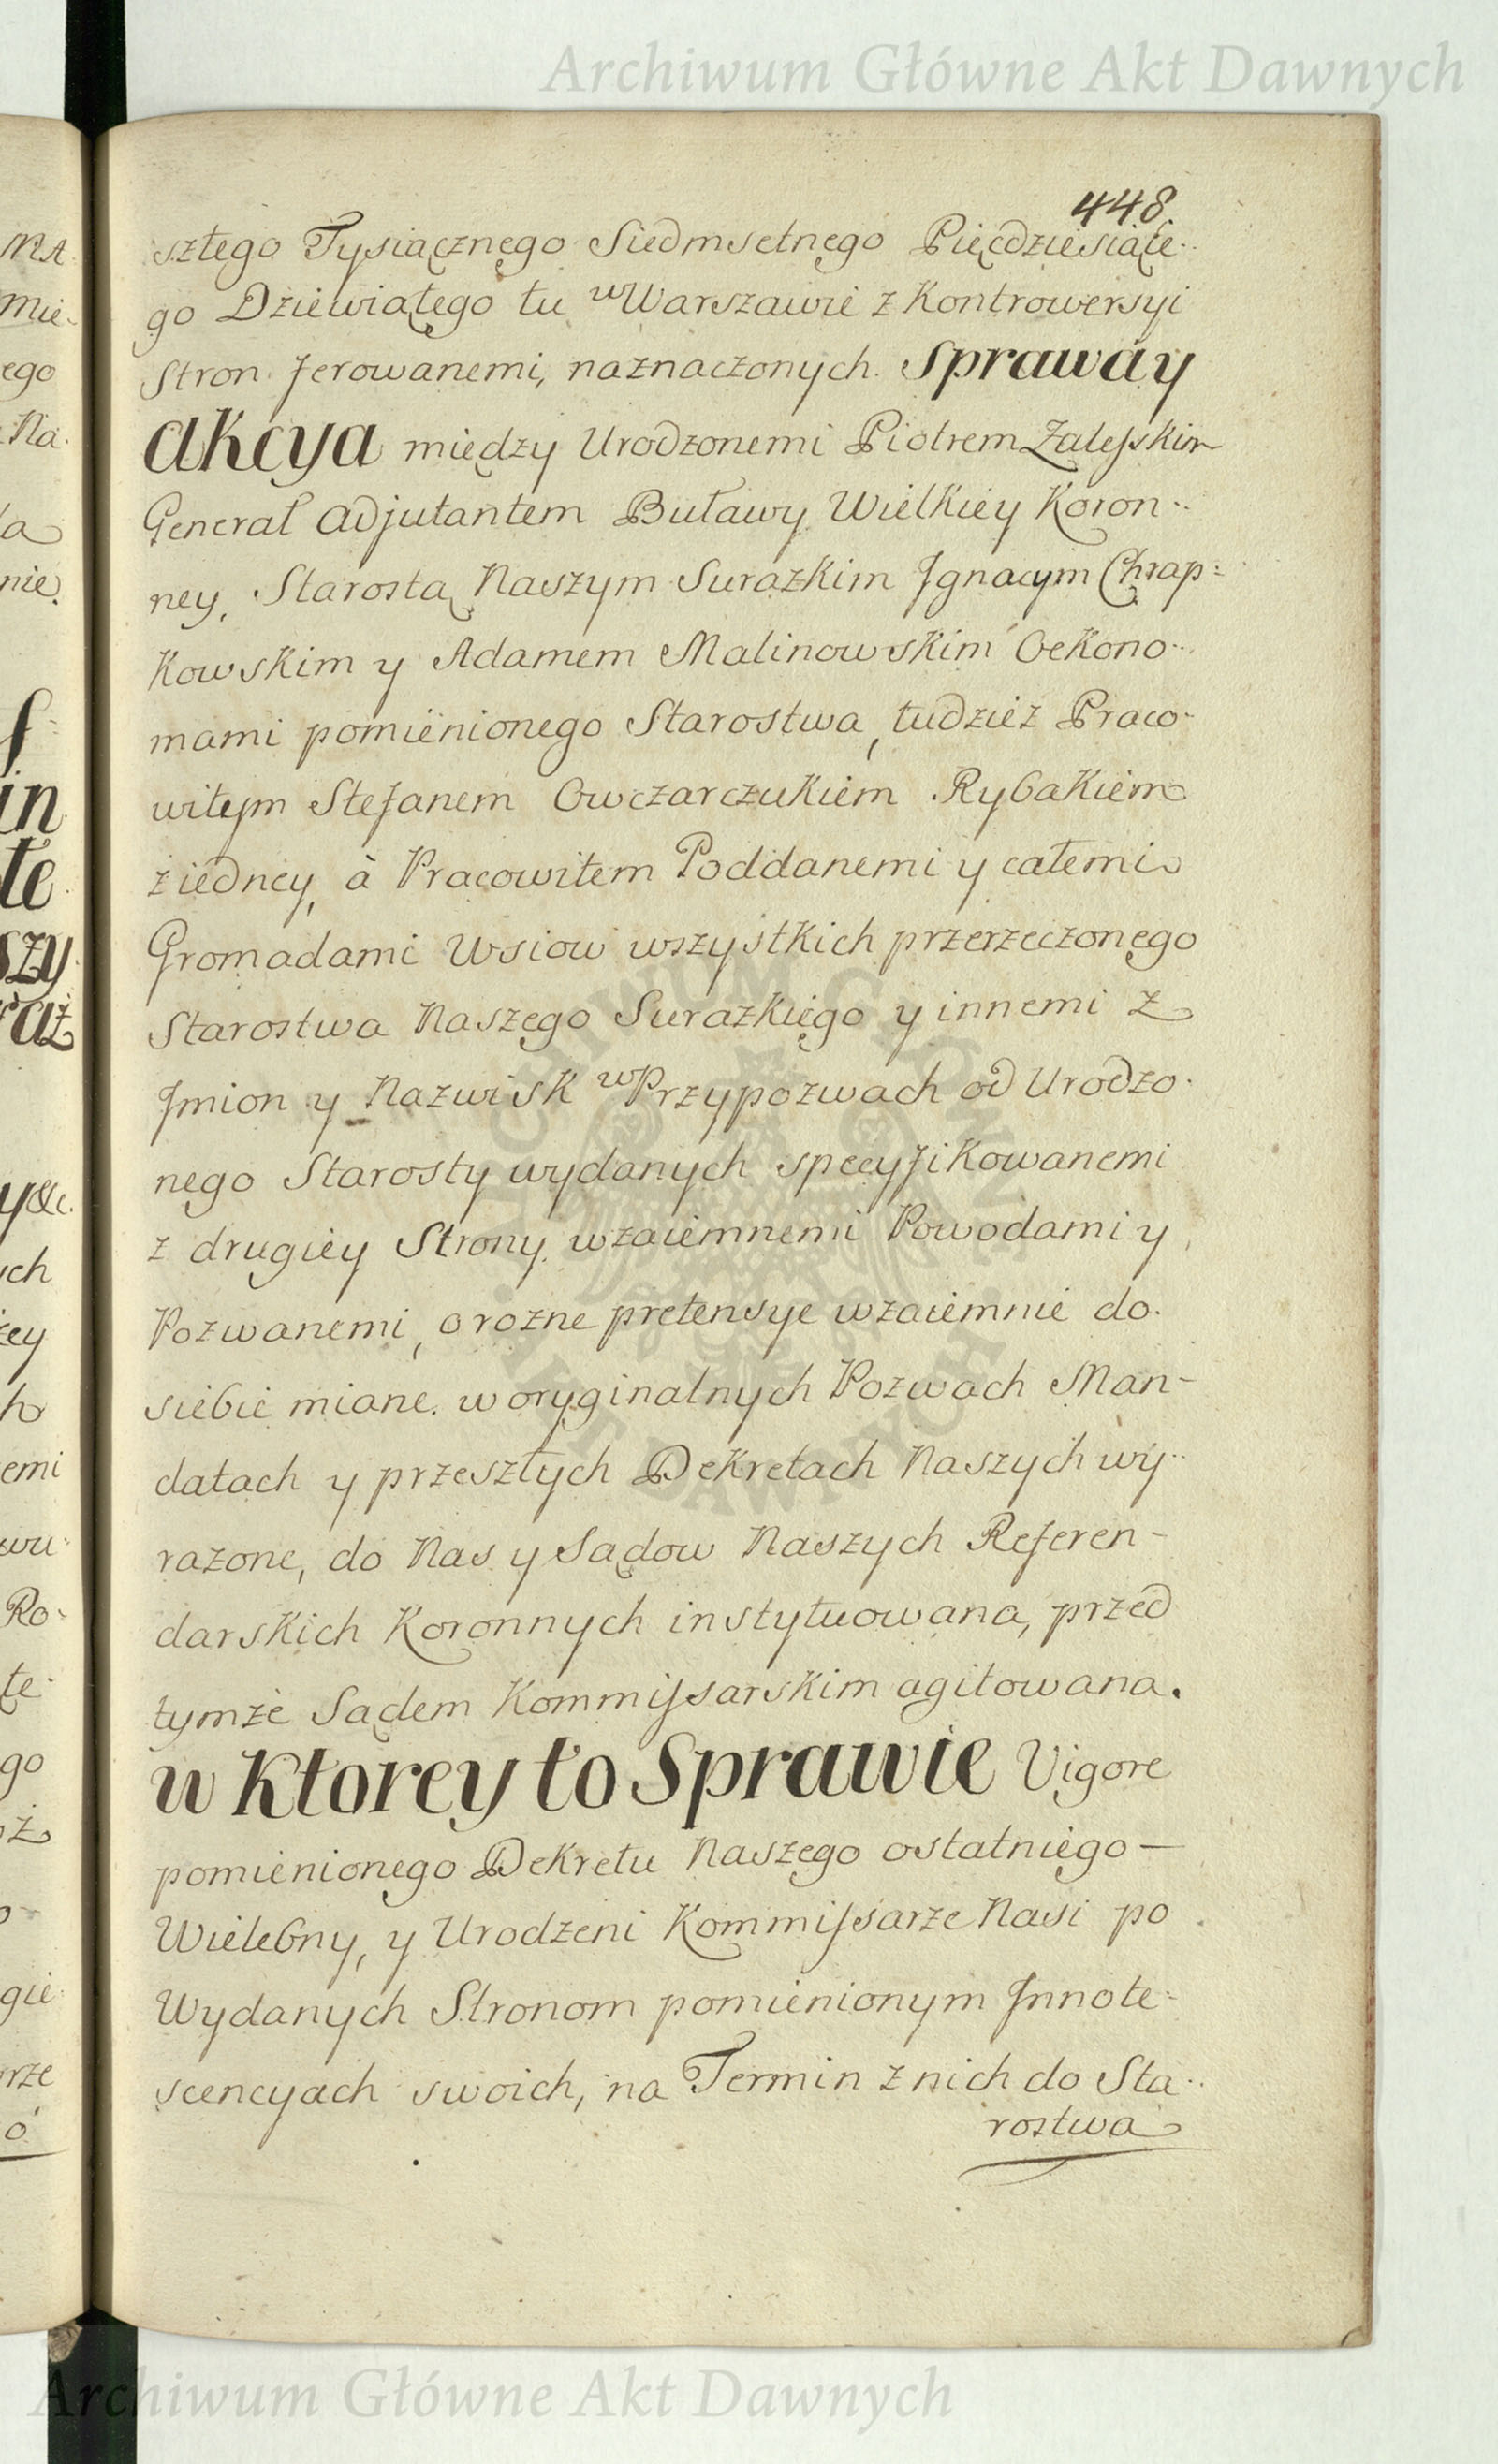 Archiwum Główne Akt Dawnych
448.
sztego Tysiącznego Siedmsetnego Pięćdziesiąte-
go Dziewiątego tu w Warszawie z Kontrowersyi
Stron ferowanemi, naznaczonych. Sprawa y
akcya między Urodzonemi Piotrem Zalesskim
Generał Adjutantem Buławy Wielkiey Koron-
ney, Starostą Naszym Surazkim Ignacym Chrap=
kowskim y Adamem Malinowskim Oekono-
mami pomienionego Starostwa, tudzież Praco-
witym Stefanem Owczarczukiem Rybakiem
z iedney, à Pracowitem Poddanemi y całemi
Gromadami Wsiow wszystkich przerzeczonego
Starostwa Naszego Surazkiego y innemi z
Imion y Nazwisk w Przypozwach od Urodzo-
nego Starosty wydanych specyfikowanemi
z drugiey Strony, wzaiemnemi Powodami y
Pozwanemi, o rozne pretensye wzaiemnie do
siebie miane. w oryginalnych Pozwach Man-
datach y przeszłych Dekretach Naszych wy-
rażone, do Nas y Sądow Naszych Referen-
darskich Koronnych instytuowana, przed
tymże Sądem Kommissarskim agitowana.
w Ktorey to Sprawie Vigore
pomienionego Dekretu Naszego ostatniego —
Wielebny, y Urodzeni Kommissarze Nasi po
Wydanych Stronom pomienionym Innote-
scencyach swoich, na Termin z nich do Sta-
rostwa
Archiwum Główne Akt Dawnych